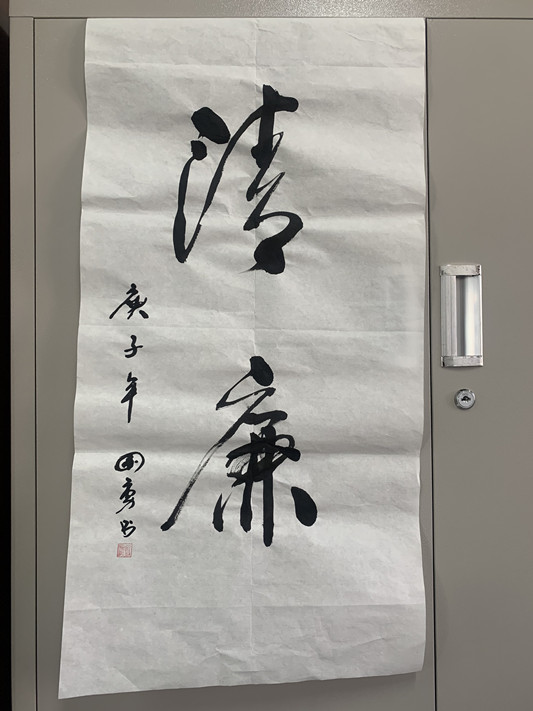 清廉
庚子年国勇书